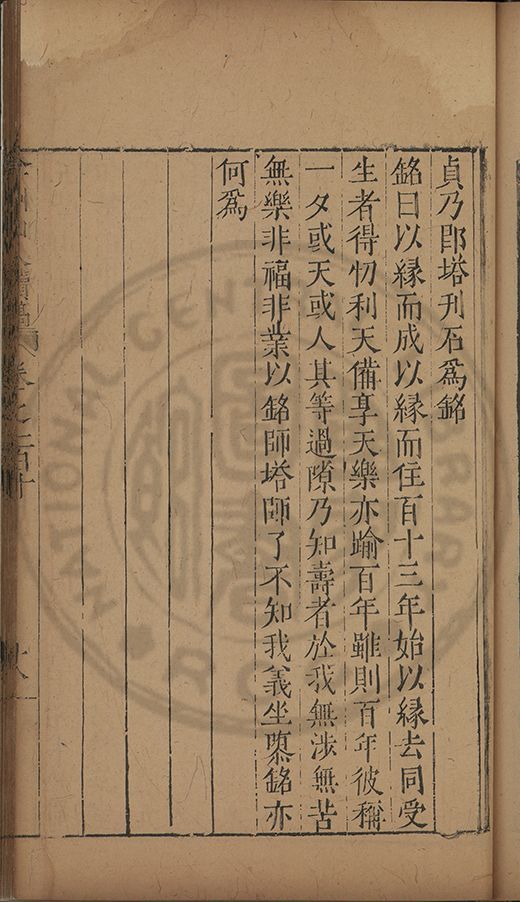 貞乃卽塔刋石爲銘
銘曰以緣而成以緣而住百十三年始以緣去同受
生者得忉利天備享天樂亦踰百年雖則百年彼稱
一夕或天或人其等過隙乃知壽者於我無涉無苦
無樂非福非業以銘師塔師了不知我義坐隳銘亦
何爲